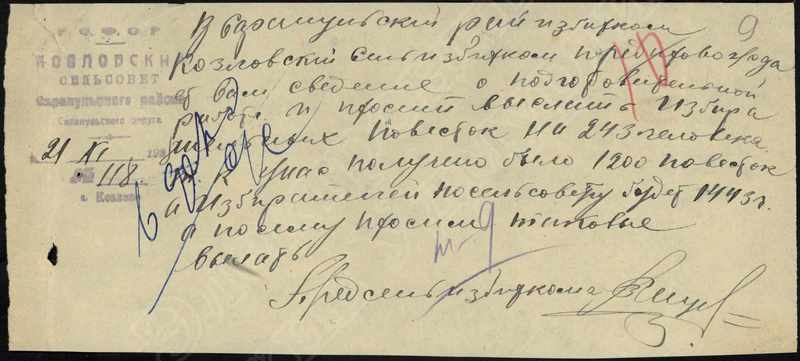 Р.С.Ф.С.Р
КОЗЛОВСКИЙ
СЕЛЬСОВЕТ
Сарапульского района
Сарапульского округа
21/XI 192
№ 118
с. Козлово
9
В Сарапульский райизбирком
Козловский сельизбирком
ет Вам сведение о подготовительной
работе и просит выслать избира
тельных повесток на 243 человека.
у нас получено было 1200 повесток
а избирателей по сельсовету будет 1443 г.
а посему просим таковые
выслать
Предсельизбиркома